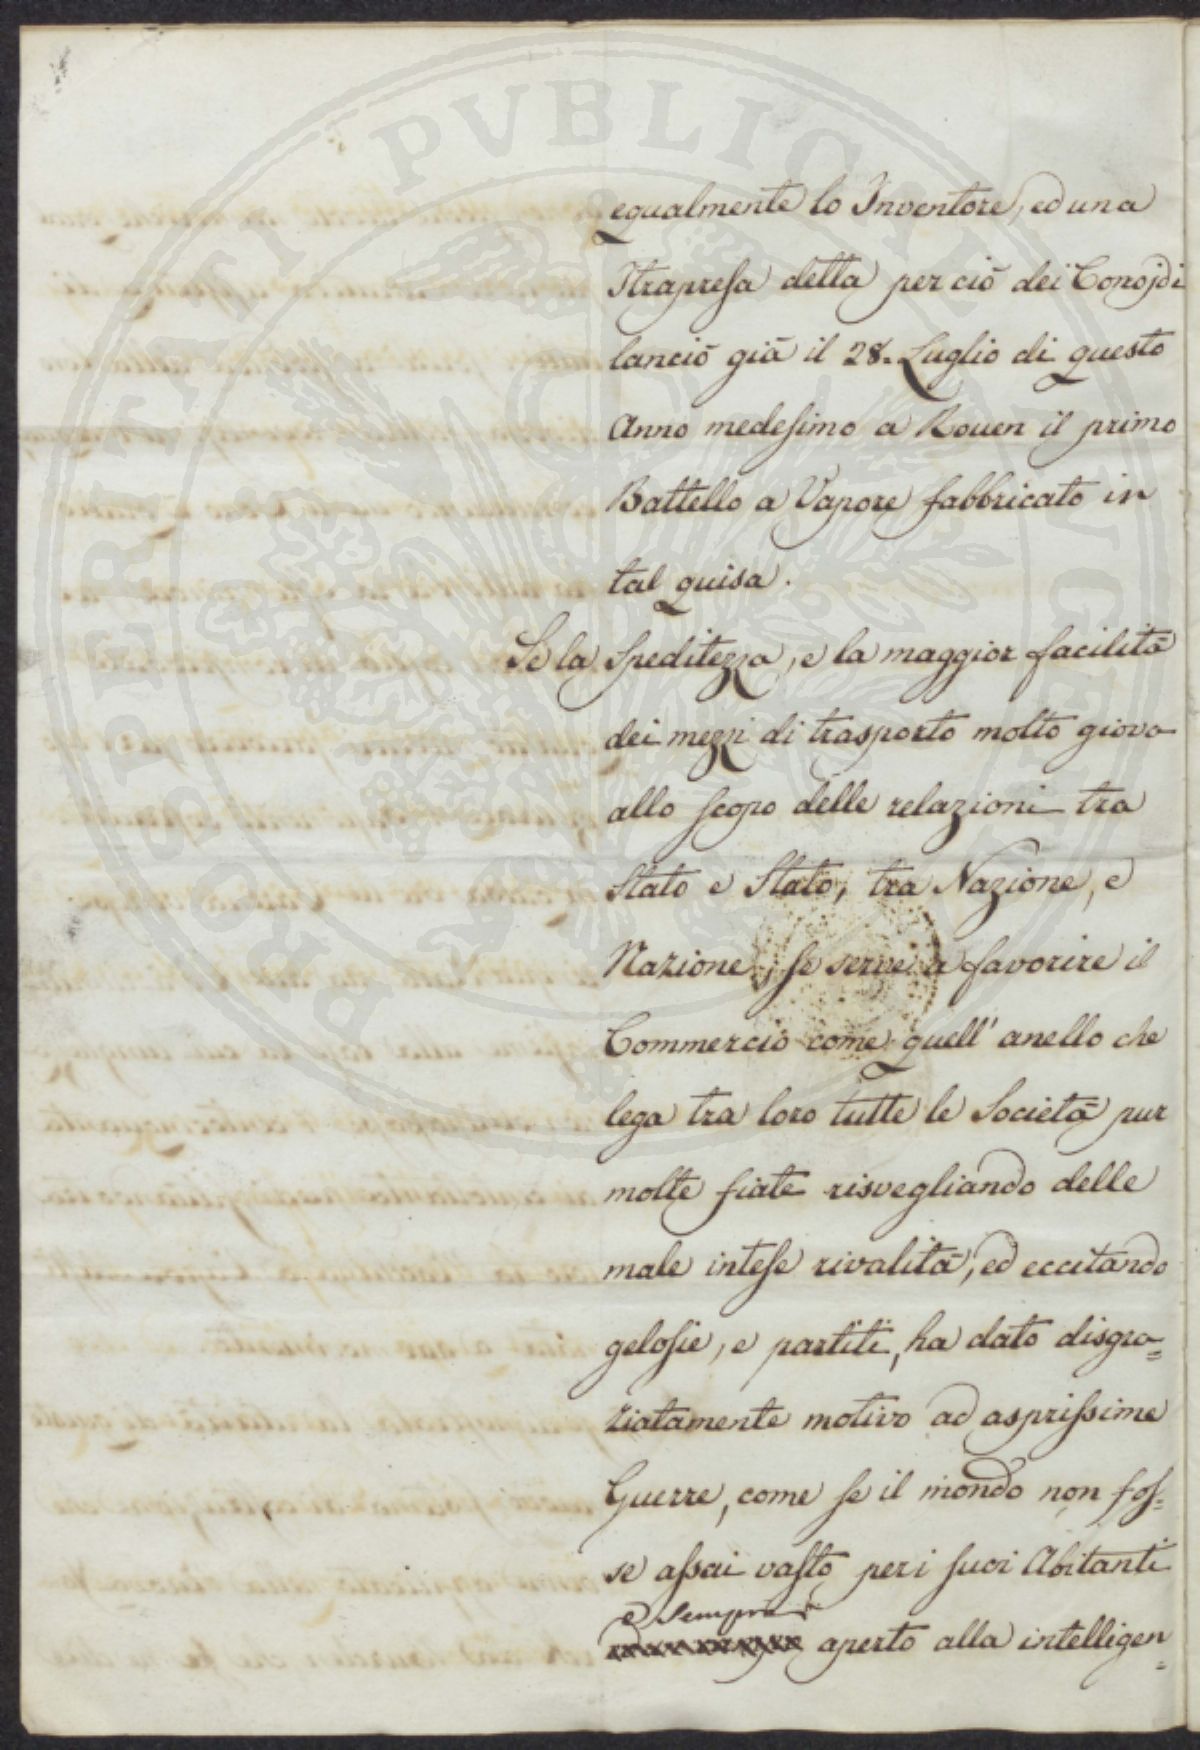 PROSPERITATI PVBLICAE AVGENDAE
egualmente lo Inventore, ed una
Itrapresa detta per ciò dei Conojdi
lanciò già il 28. Luglio di questo
Anno medesimo a Rouen il primo
Battello a Vapore fabbricato in
tal guisa.
Se la speditezza, e la maggior facilità
dei mezzi di trasporto molto giova
allo scopo delle relazioni tra
Stato e Stato, tra Nazione, e
Nazione, se serve a favorire il
Commercio come quell' anello che
lega tra loro tutte le Società pur
molte fiate risvegliando delle
male intese rivalità, ed eccitando
gelosie, e partiti, ha dato disgra=
ziatamente motivo ad asprissime
Guerre, come se il mondo non fos=
se assai vasto per i suoi Abitanti
e sempre
aperto alla intelligen=